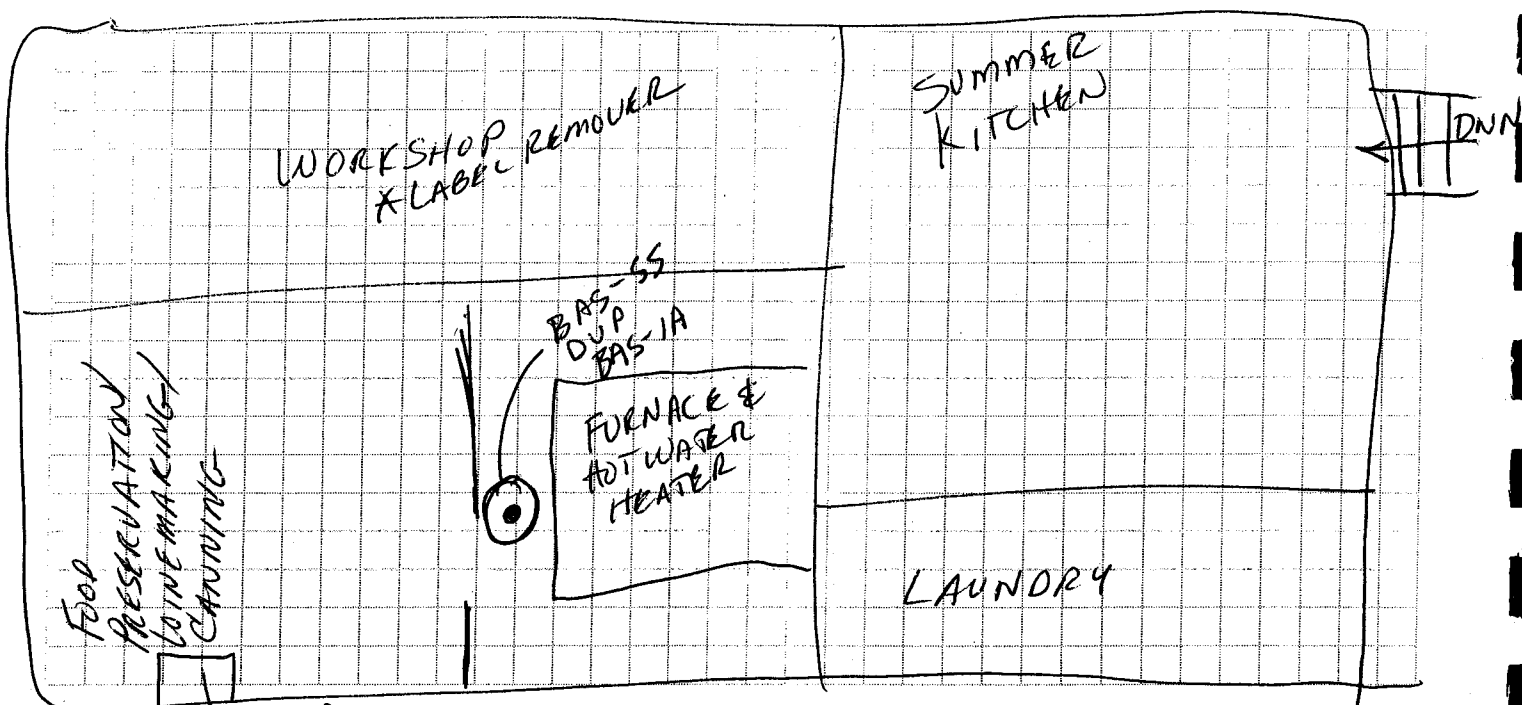 WORKSHOP
*LABEL REMOVER
SUMMER
KITCHEN
DNN
BAS-SS
DUP
BAS-IA
FURNACE &
HOT WATER
HEATER
FOOD
PRESERVATION/
WINEMAKING/
CANNING
LAUNDRY